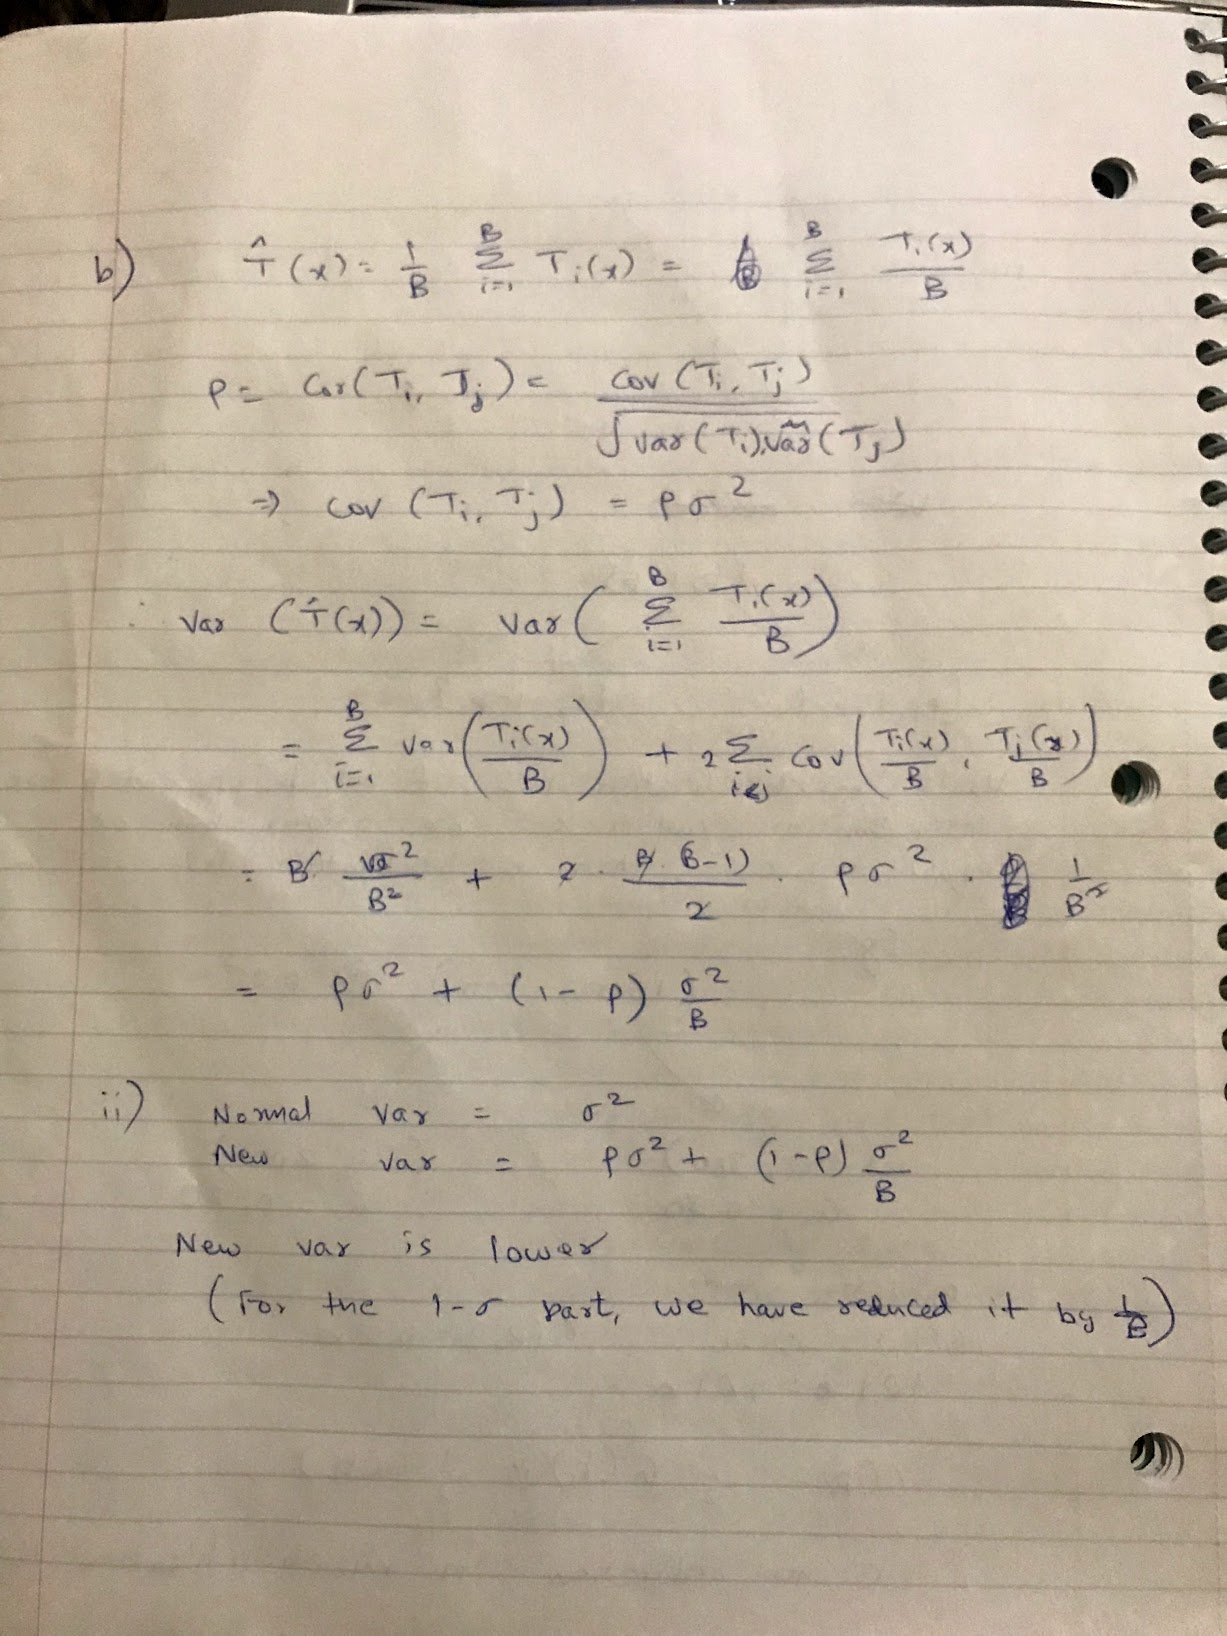 b) T̂(x) = 1/B Σ_{i=1}^{B} T_i(x) = Σ_{i=1}^{B} T_i(x)/B
ρ = Cor(T_i, T_j) = cov(T_i, T_j) / √(var(T_i).var(T_j))
⇒ cov(T_i, T_j) = ρσ²
∴ var(T̂(x)) = var(Σ_{i=1}^{B} T_i(x)/B)
= Σ_{i=1}^{B} var(T_i(x)/B) + 2 Σ_{i<j} cov(T_i(x)/B, T_j(x)/B)
= B σ²/B² + 2 . B(B-1)/2 . ρσ² . 1/B²
= ρσ² + (1-ρ) σ²/B
ii) Normal var = σ²
New var = ρσ² + (1-ρ) σ²/B
New var is lower
(For the 1-σ part, we have reduced it by 1/B)